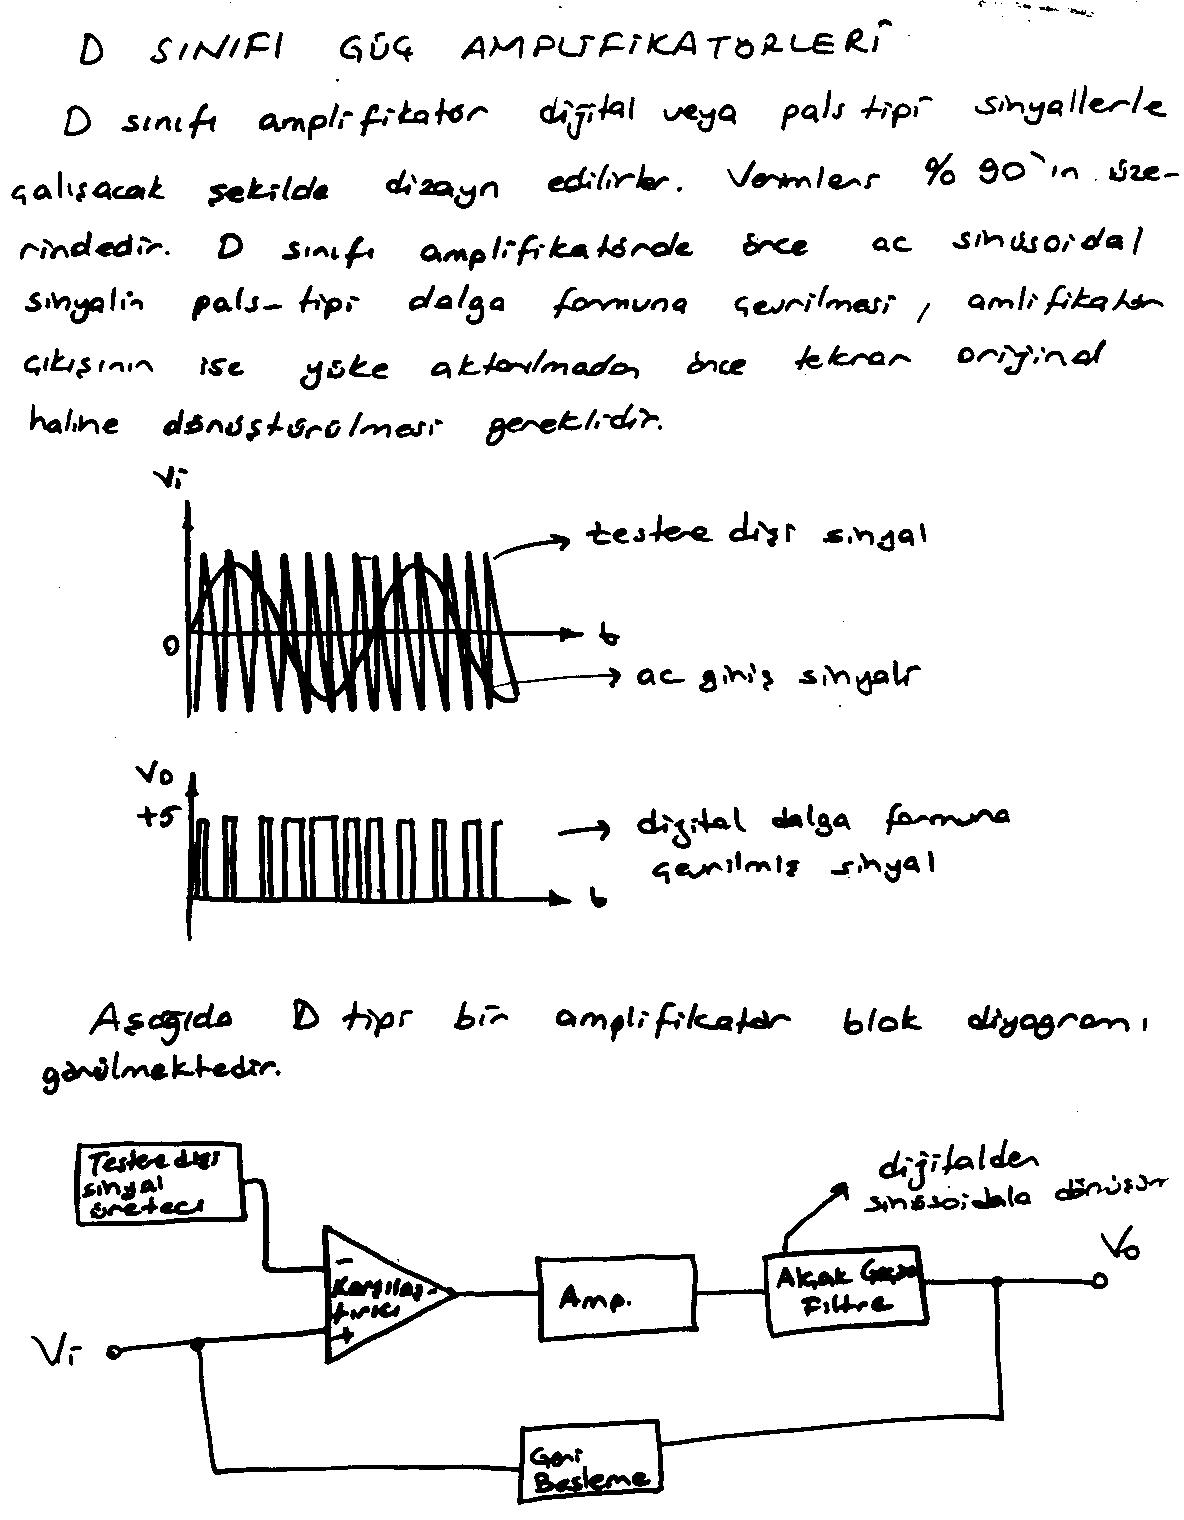 D SINIFI GÜÇ AMPLİFİKATÖRLERİ
D sınıfı amplifikatör diğital veya pals tipi sinyallerle
çalışacak şekilde dizayn edilirler. Verimleri % 90'ın üze-
rindedir. D sınıfı amplifikatörde önce ac sinüsoidal
sinyalin pals-tipi dalga formuna çevrilmesi, amlifikatör
çıkışının ise yüke aktarılmadan önce tekrar oriğinal
haline dönüştürülmesi gereklidir.
Vi
testere dişi sinyal
0
t
ac giriş sinyali
Vo
+5
diğital dalga formuna
çevrilmiş sinyal
t
Aşağıda D tipi bir amplifikatör blok diyagramı
görülmektedir.
Testere dişi
sinyal
üreteci
diğitalden
sinüsoidale dönüşür
Vo
-
Karşılaş-
tırıcı
+
Amp.
Alçak Geçen
Filtre
Vi
Geri
Besleme